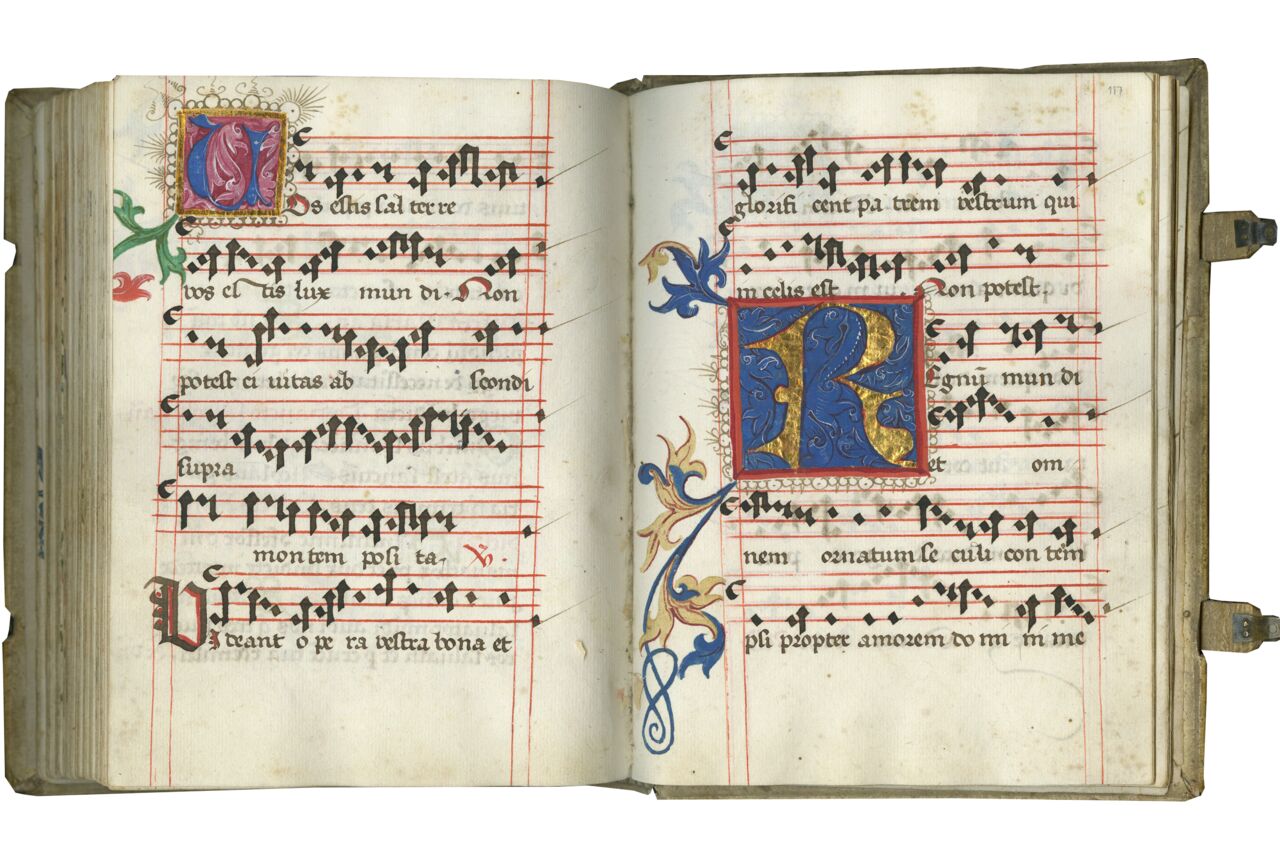 Vos estis sal terre
vos es tis lux mun di. Non
potest ci vitas ab scondi
supra
montem posi ta.
Videant o pe ra vestra bona et
117
glorifi cent pa trem vestrum qui
in celis est Non potest
Regnū mun di
et om
nem ornatum se culi con tem
psi propter amorem do mi ni me